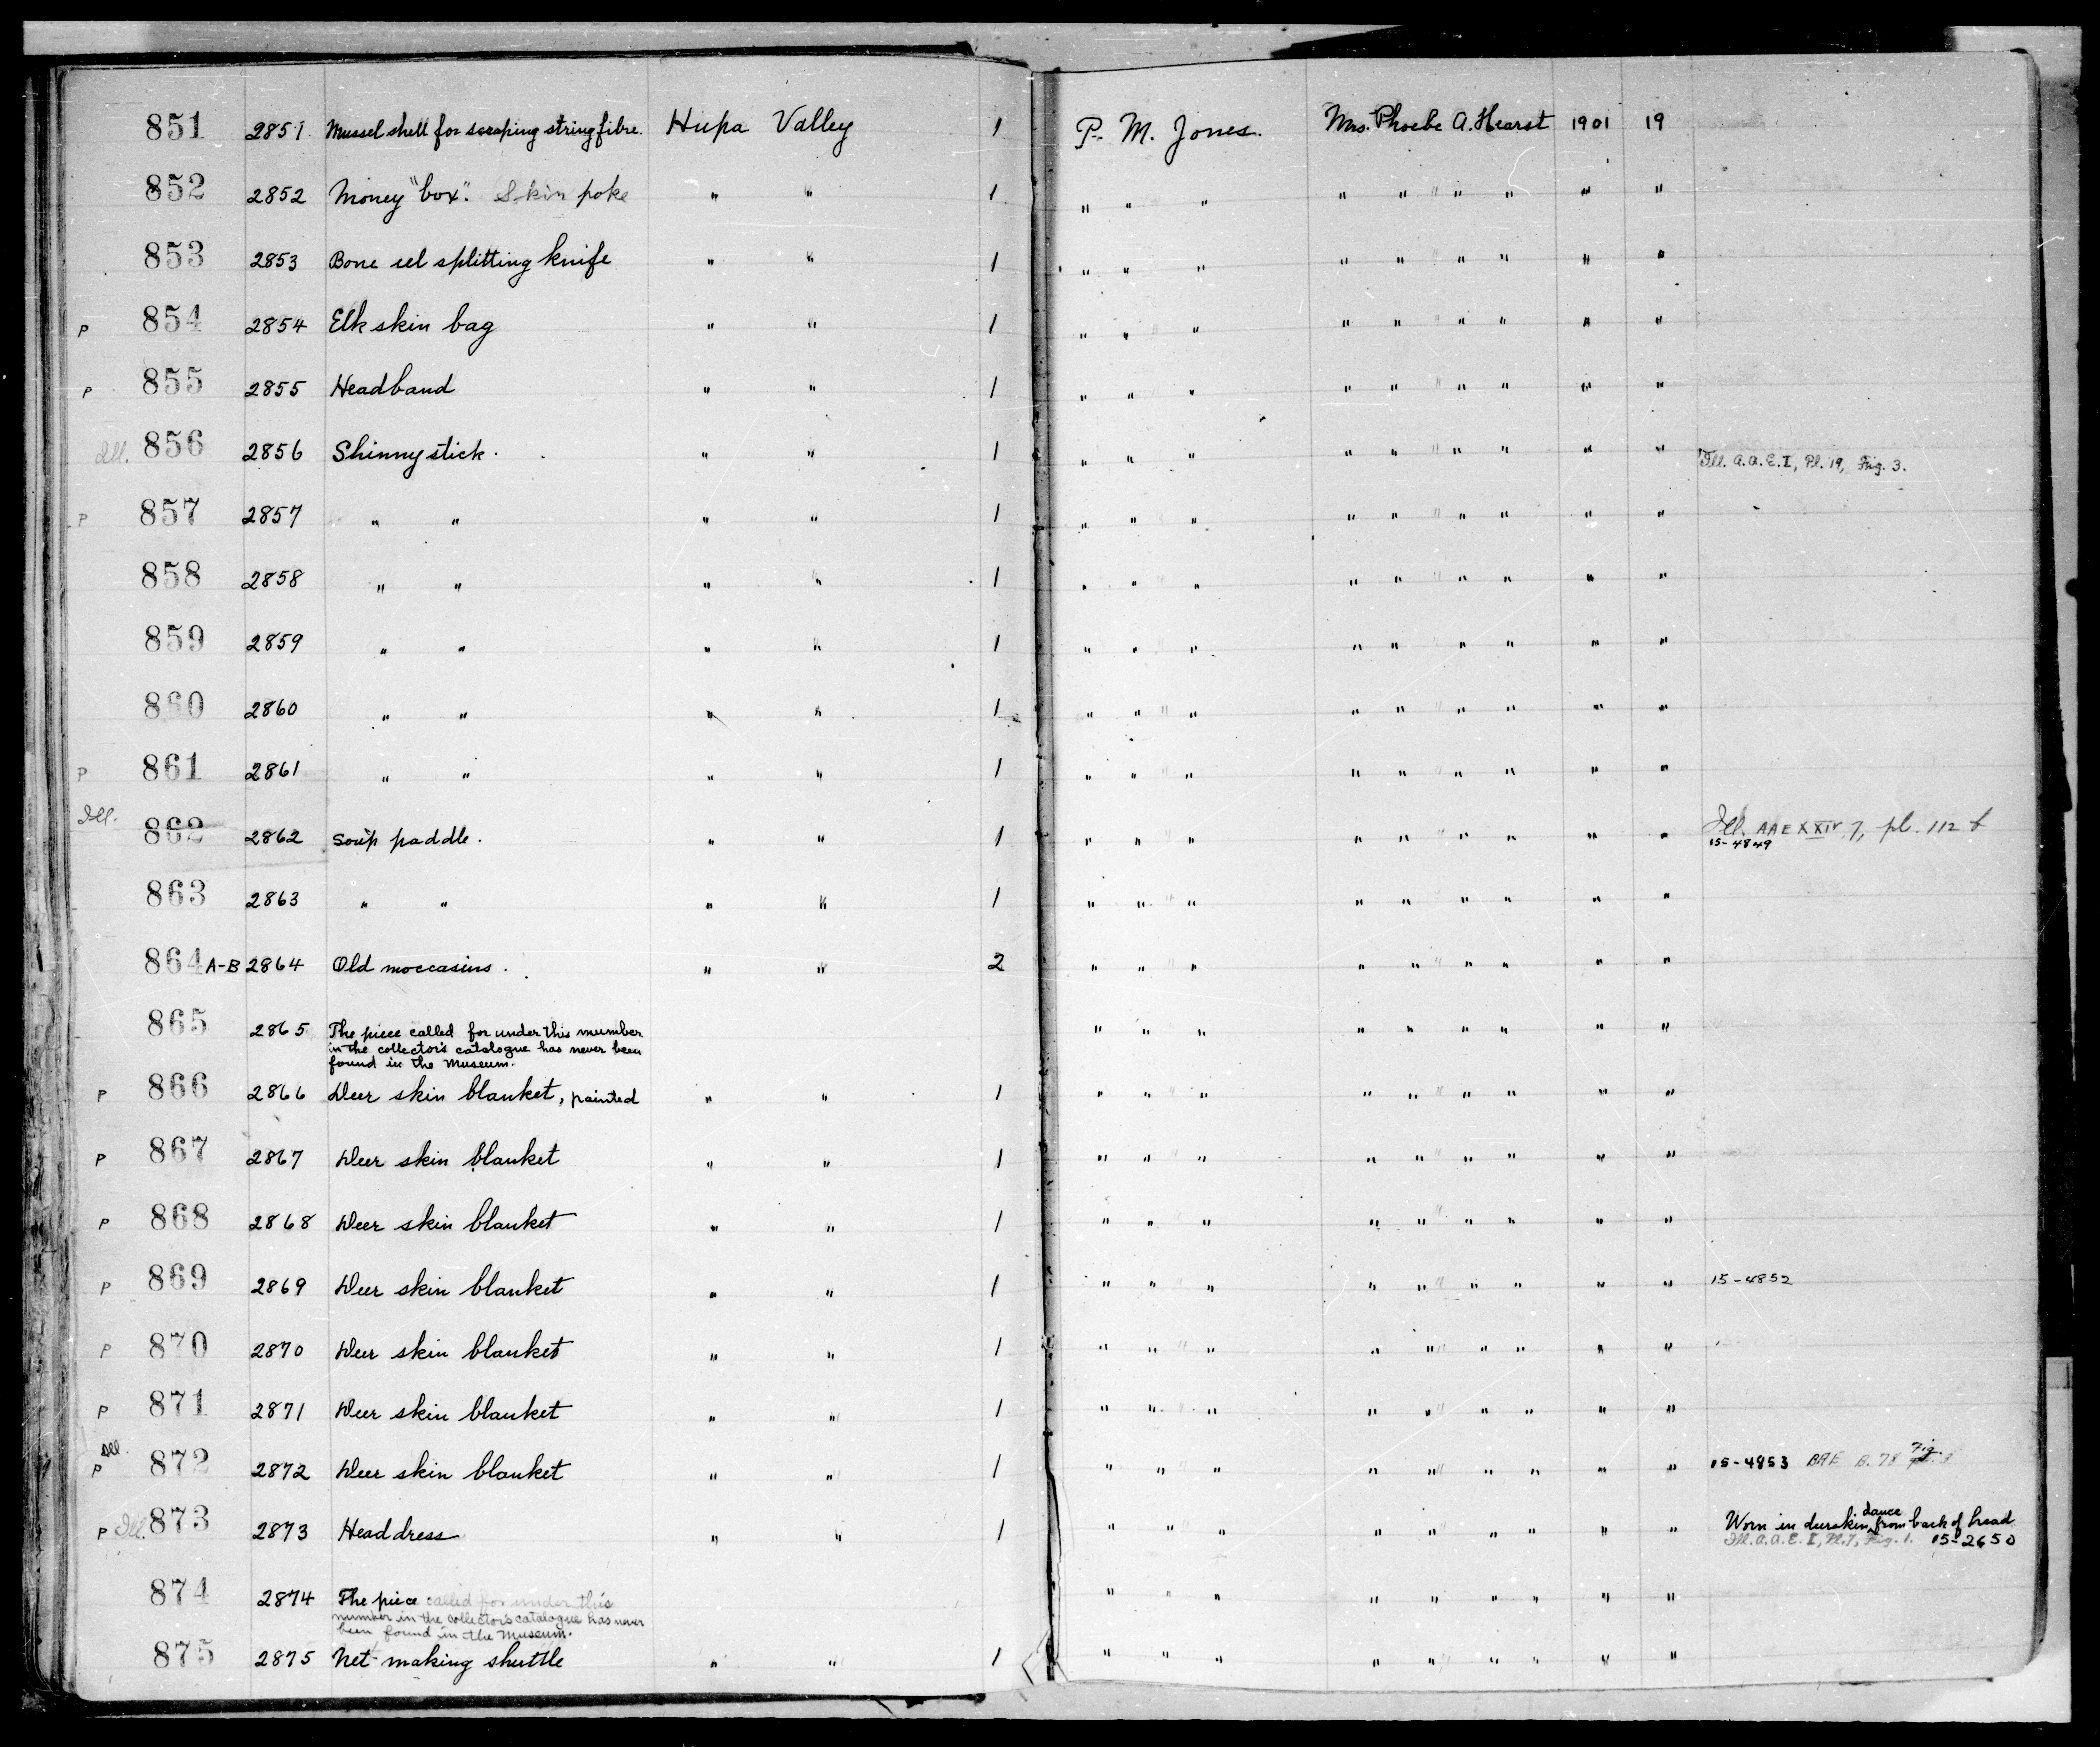 851 2851 Mussel shell for scraping string fibre. Hupa Valley 1 P. M. Jones. Mrs. Phoebe A. Hearst 1901 19
852 2852 Money "box". Skin poke " " 1 " " " " " " " " " "
853 2853 Bone eel splitting knife " " 1 " " " " " " " " " "
P 854 2854 Elk skin bag " " 1 " " " " " " " " " "
P 855 2855 Headband " " 1 " " " " " " " " " "
Ill. 856 2856 Shinny stick. " " 1 " " " " " " " " " " Ill. A.A.E.I, Pl. 19, Fig. 3.
P 857 2857 " " " " 1 " " " " " " " " " "
858 2858 " " " " 1 " " " " " " " " " "
859 2859 " " " " 1 " " " " " " " " " "
860 2860 " " " " 1 " " " " " " " " " "
P 861 2861 " " " " 1 " " " " " " " " " "
Ill. 862 2862 Soup paddle. " " 1 " " " " " " " " " " Ill. AAE XXIV 7, pl. 112 f
15-4849
863 2863 " " " " 1 " " " " " " " " " "
864 A-B 2864 Old moccasins. " " 2 " " " " " " " " " "
865 2865 The piece called for under this number " " " " " " " " "
in the collector's catalogue has never been
found in the Museum.
P 866 2866 Deer skin blanket, painted " " 1 " " " " " " " " " "
P 867 2867 Deer skin blanket " " 1 " " " " " " " " " "
P 868 2868 Deer skin blanket " " 1 " " " " " " " " " "
P 869 2869 Deer skin blanket " " 1 " " " " " " " " " " 15-4852
P 870 2870 Deer skin blanket " " 1 " " " " " " " " " "
P 871 2871 Deer skin blanket " " 1 " " " " " " " " " "
Ill.
P 872 2872 Deer skin blanket " " 1 " " " " " " " " " " 15-4853 BAE B. 78 Fig.
P Ill. 873 2873 Headdress " " 1 " " " " " " " " " Worn in deerskin dance from back of head
Ill. A.A.E. I, Pl. 7, Fig. 1. 15-2650
874 2874 The piece called for under this " " " " " " " " "
number in the collector's catalogue has never
been found in the Museum.
875 2875 Net-making shuttle " " 1 " " " " " " " " " "